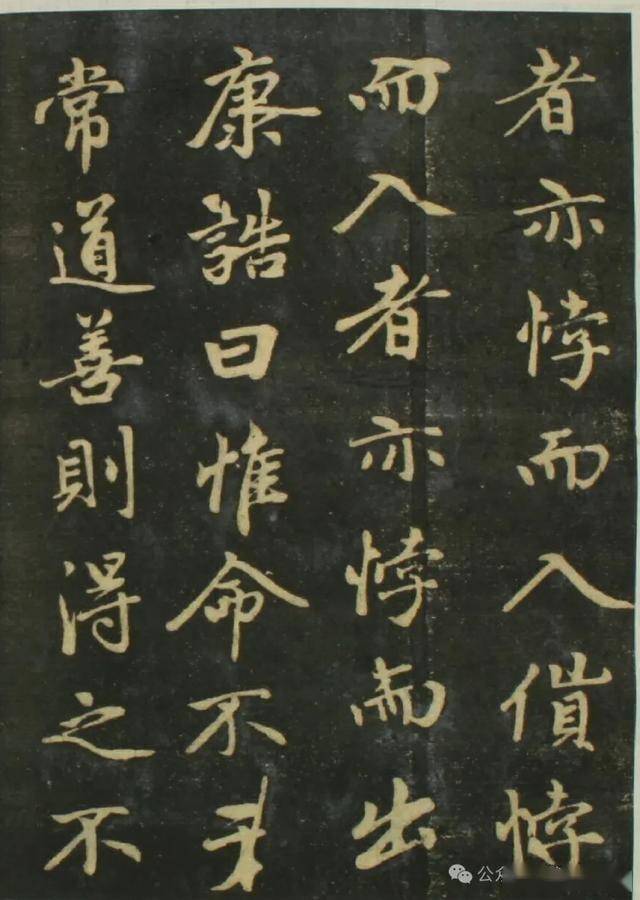 者亦悖而入貨悖
而入者亦悖而出
康誥曰惟命不于
常道善則得之不
公众